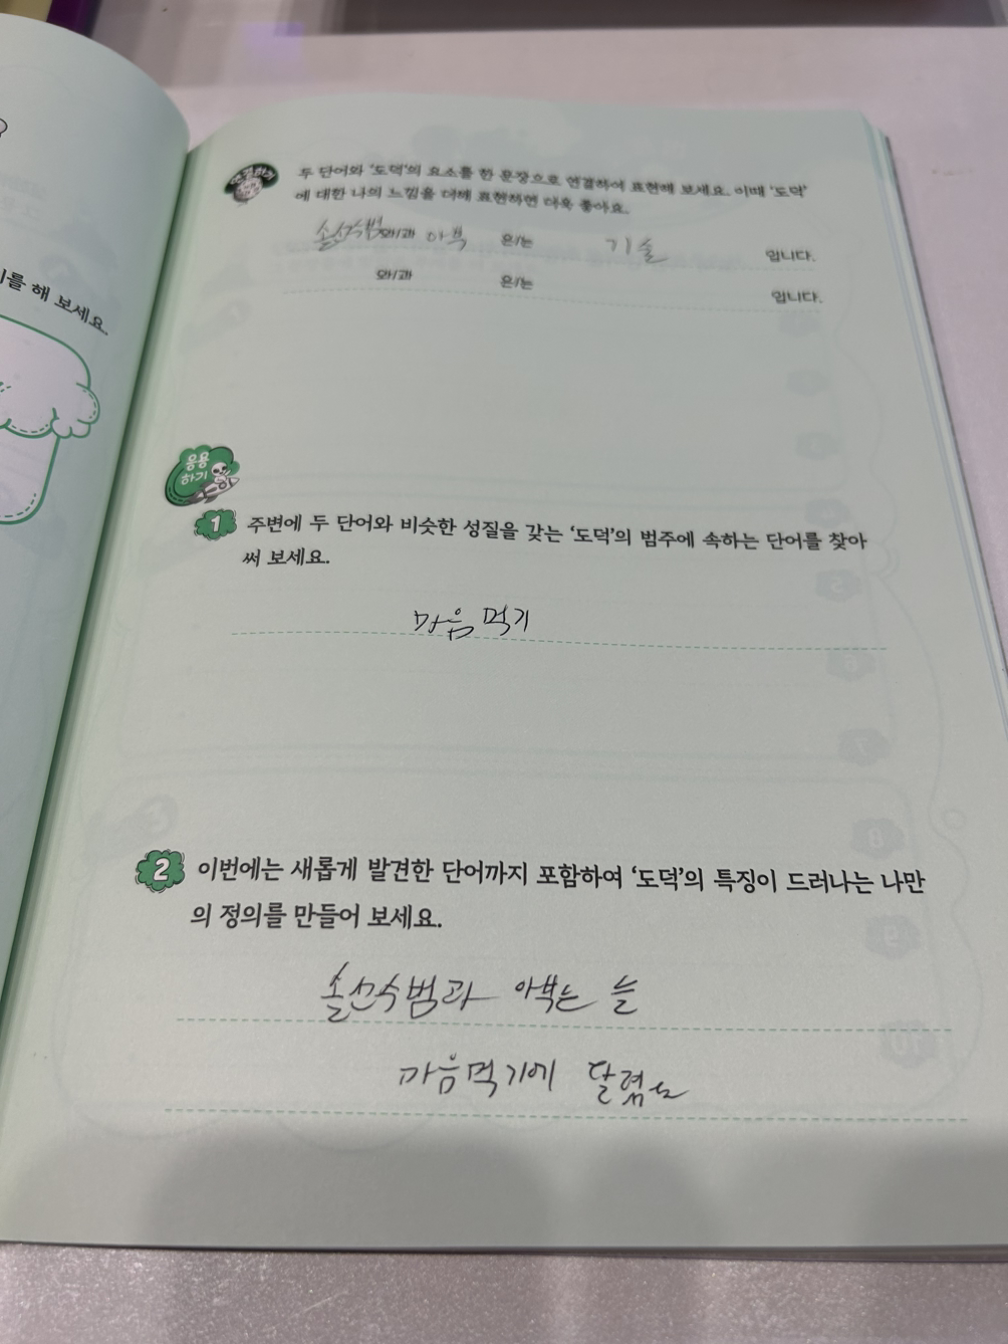 를 해 보세요.
두 단어와 '도덕'의 요소를 한 문장으로 연결하여 표현해 보세요. 이때 '도덕'
에 대한 나의 느낌을 더해 표현하면 더욱 좋아요.
솔선수범 와/과 아부 은/는 기술 입니다.
와/과 은/는 입니다.
응용
하기
1 주변에 두 단어와 비슷한 성질을 갖는 '도덕'의 범주에 속하는 단어를 찾아
써 보세요.
마음먹기
2 이번에는 새롭게 발견한 단어까지 포함하여 '도덕'의 특징이 드러나는 나만
의 정의를 만들어 보세요.
솔선수범과 아부는 늘
마음먹기에